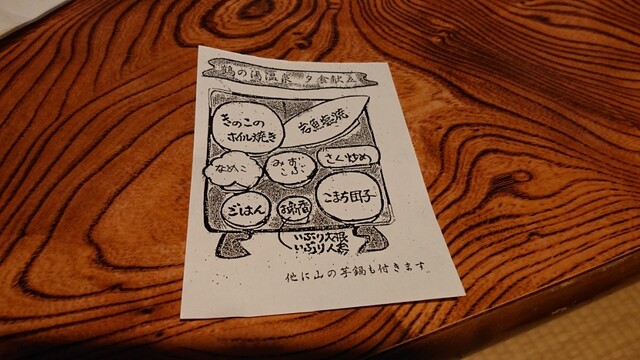 鶴の湯温泉 夕食献立
きのこの
ホイル焼き
岩魚塩焼
なめこ
みず
こぶ
さく炒め
ごはん
お新香
こまち団子
いぶり大根
いぶり人参
他に山の芋鍋も付きます。